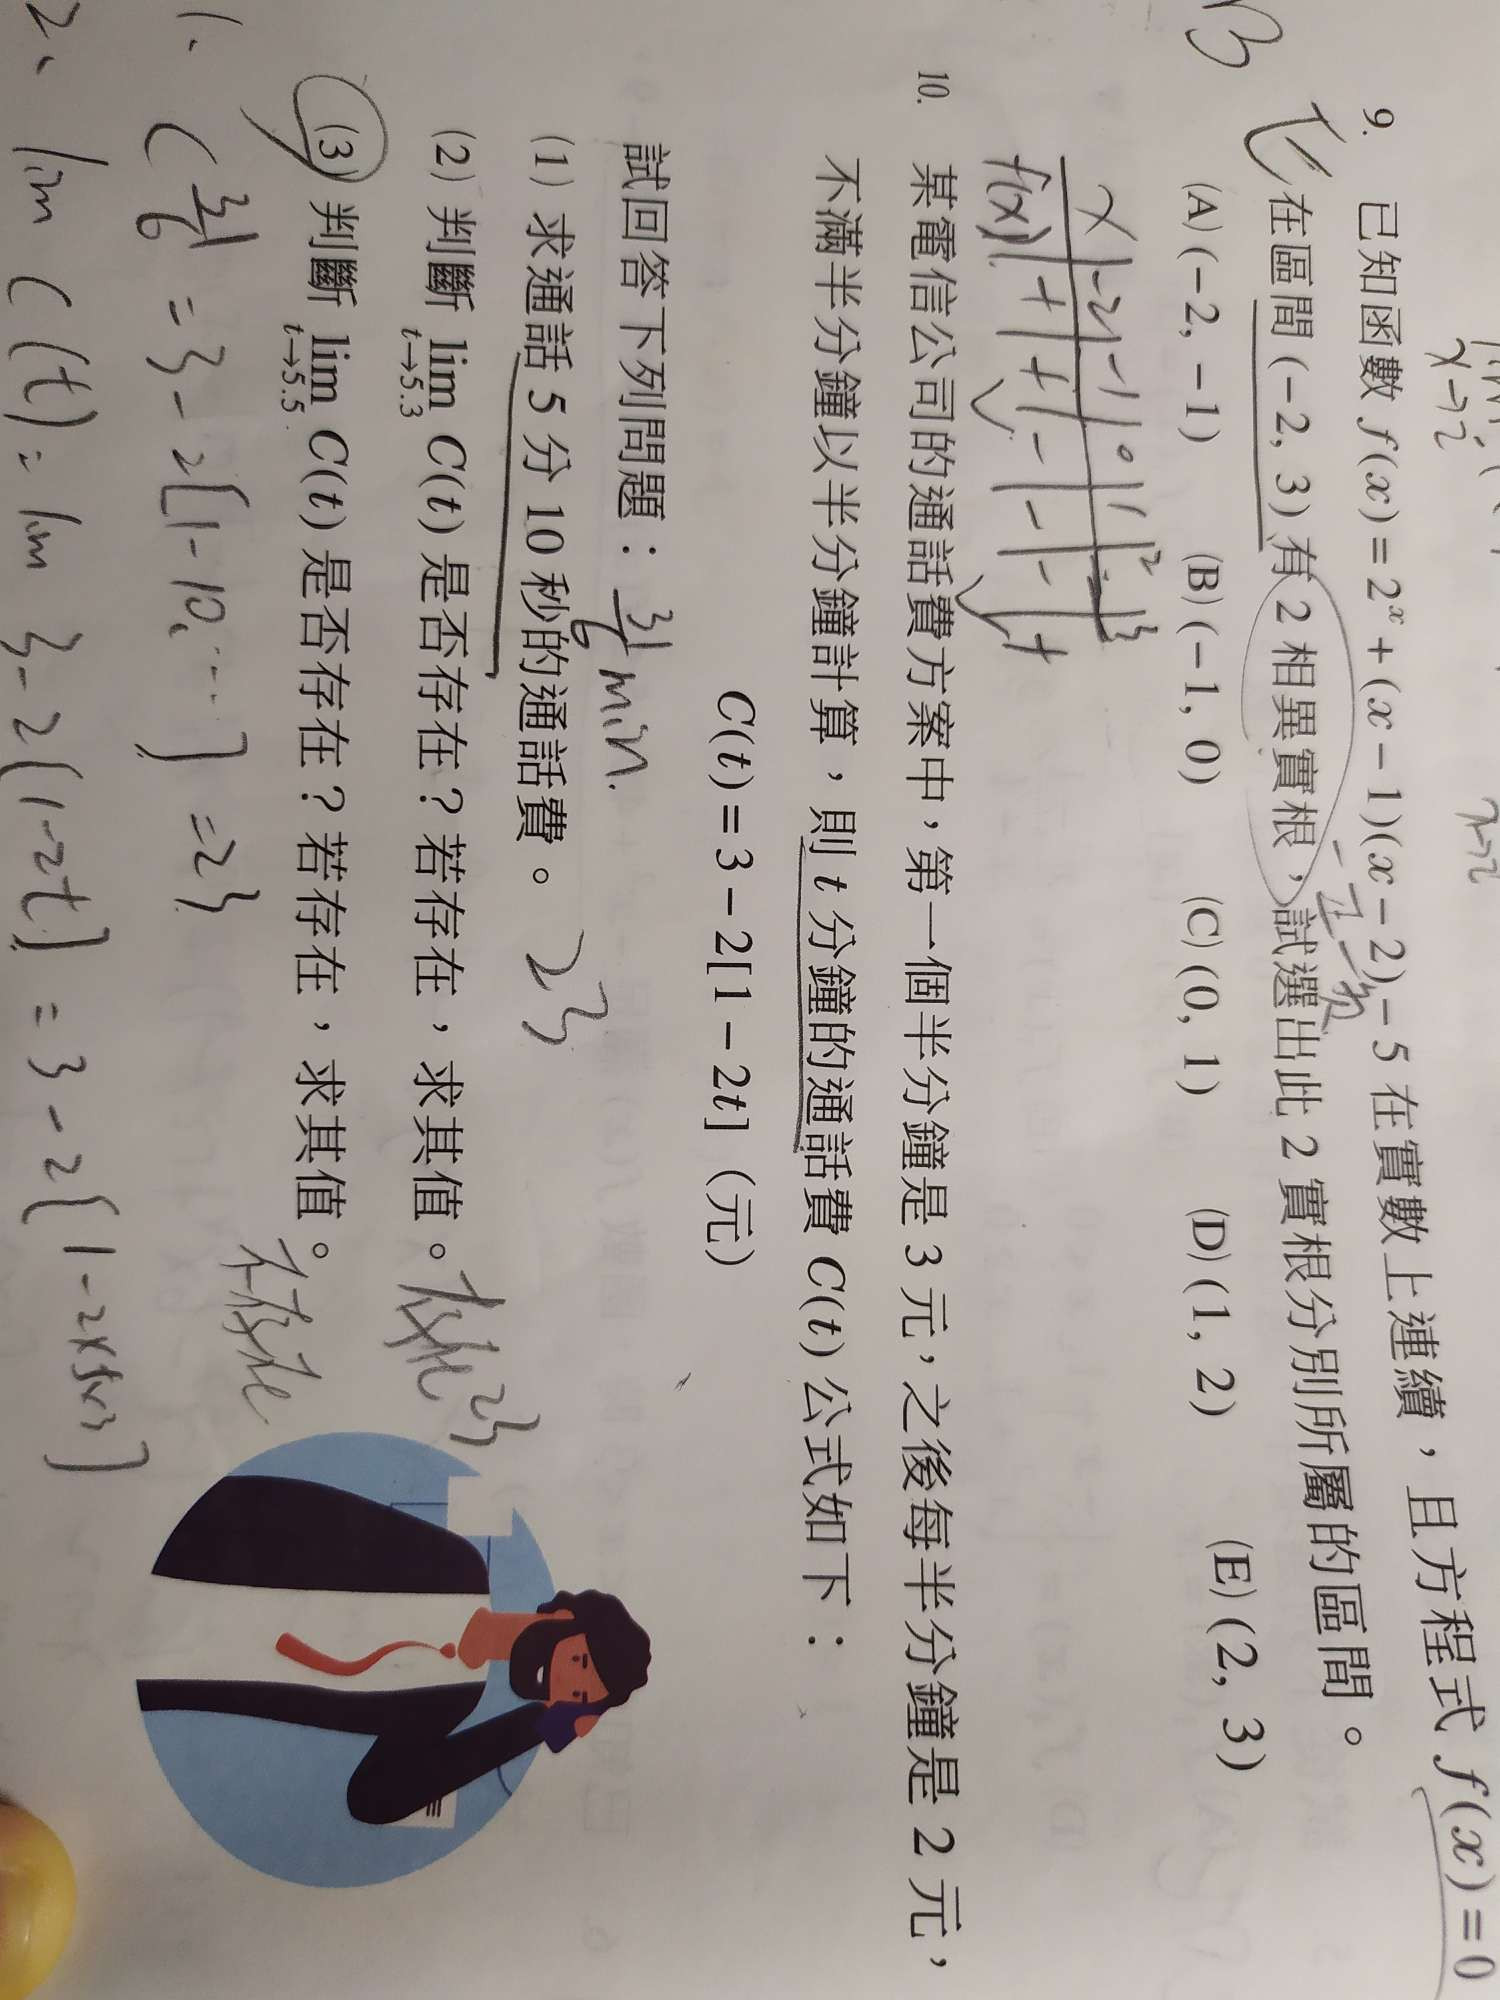 lim
x→2
x→2
B
9. 已知函數 f(x)=2ˣ+(x−1)(x−2)−5 在實數上連續，且方程式 f(x)=0
在區間(−2, 3)有 2 相異實根，試選出此 2 實根分別所屬的區間。
一正一負
(A)(−2, −1) (B)(−1, 0) (C)(0, 1) (D)(1, 2) (E)(2, 3)
x -2 -1 0 1 2 3
f(x) + + - - - +
10. 某電信公司的通話費方案中，第一個半分鐘是 3 元，之後每半分鐘是 2 元，
不滿半分鐘以半分鐘計算，則 t 分鐘的通話費 C(t) 公式如下：
C(t)=3−2[1−2t]（元）
試回答下列問題：
31/6 min.
(1) 求通話 5 分 10 秒的通話費。 23
(2) 判斷 lim t→5.3 C(t) 是否存在？若存在，求其值。 存在 23
(3) 判斷 lim t→5.5 C(t) 是否存在？若存在，求其值。 不存在
1. C 31/6 = 3-2[1-10....] =23
2. lim C(t) = lim 3-2[1-2t] = 3-2[1-2×5.3]